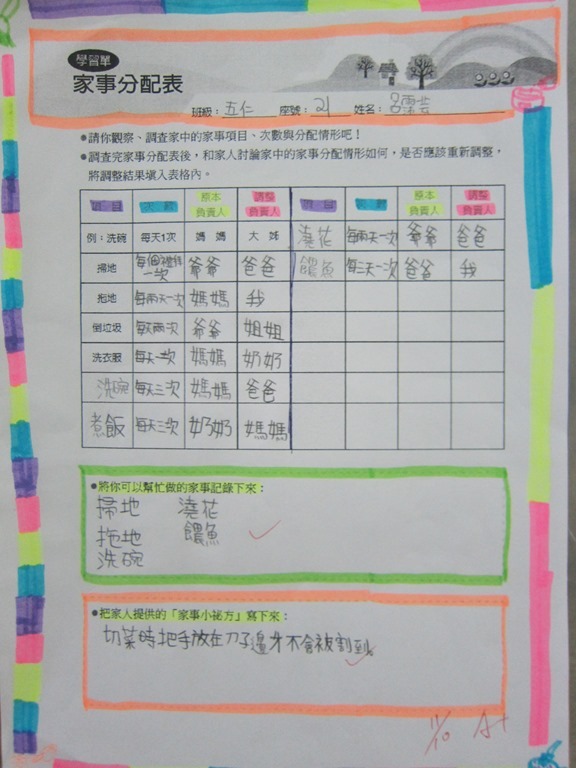 學習單
家事分配表
班級：五仁 座號：21 姓名：呂
●請你觀察、調查家中的家事項目、次數與分配情形吧！
●調查完家事分配表後，和家人討論家中的家事分配情形如何，是否應該重新調整，
將調整結果填入表格內。
項目 次數 原本負責人 調整負責人 項目 次數 原本負責人 調整負責人
例：洗碗 每天1次 媽媽 大姊 澆花 每兩天一次 爺爺 爸爸
掃地 每個禮拜一次 爺爺 爸爸 餵魚 每三天一次 爸爸 我
拖地 每兩天一次 媽媽 我
倒垃圾 每天兩次 爺爺 姐姐
洗衣服 每天一次 媽媽 奶奶
洗碗 每天三次 媽媽 爸爸
煮飯 每天三次 奶奶 媽媽
●將你可以幫忙做的家事記錄下來：
掃地 澆花
拖地 餵魚
洗碗
●把家人提供的「家事小祕方」寫下來：
切菜時把手放在刀子邊才不會被割到。
11/10 A+